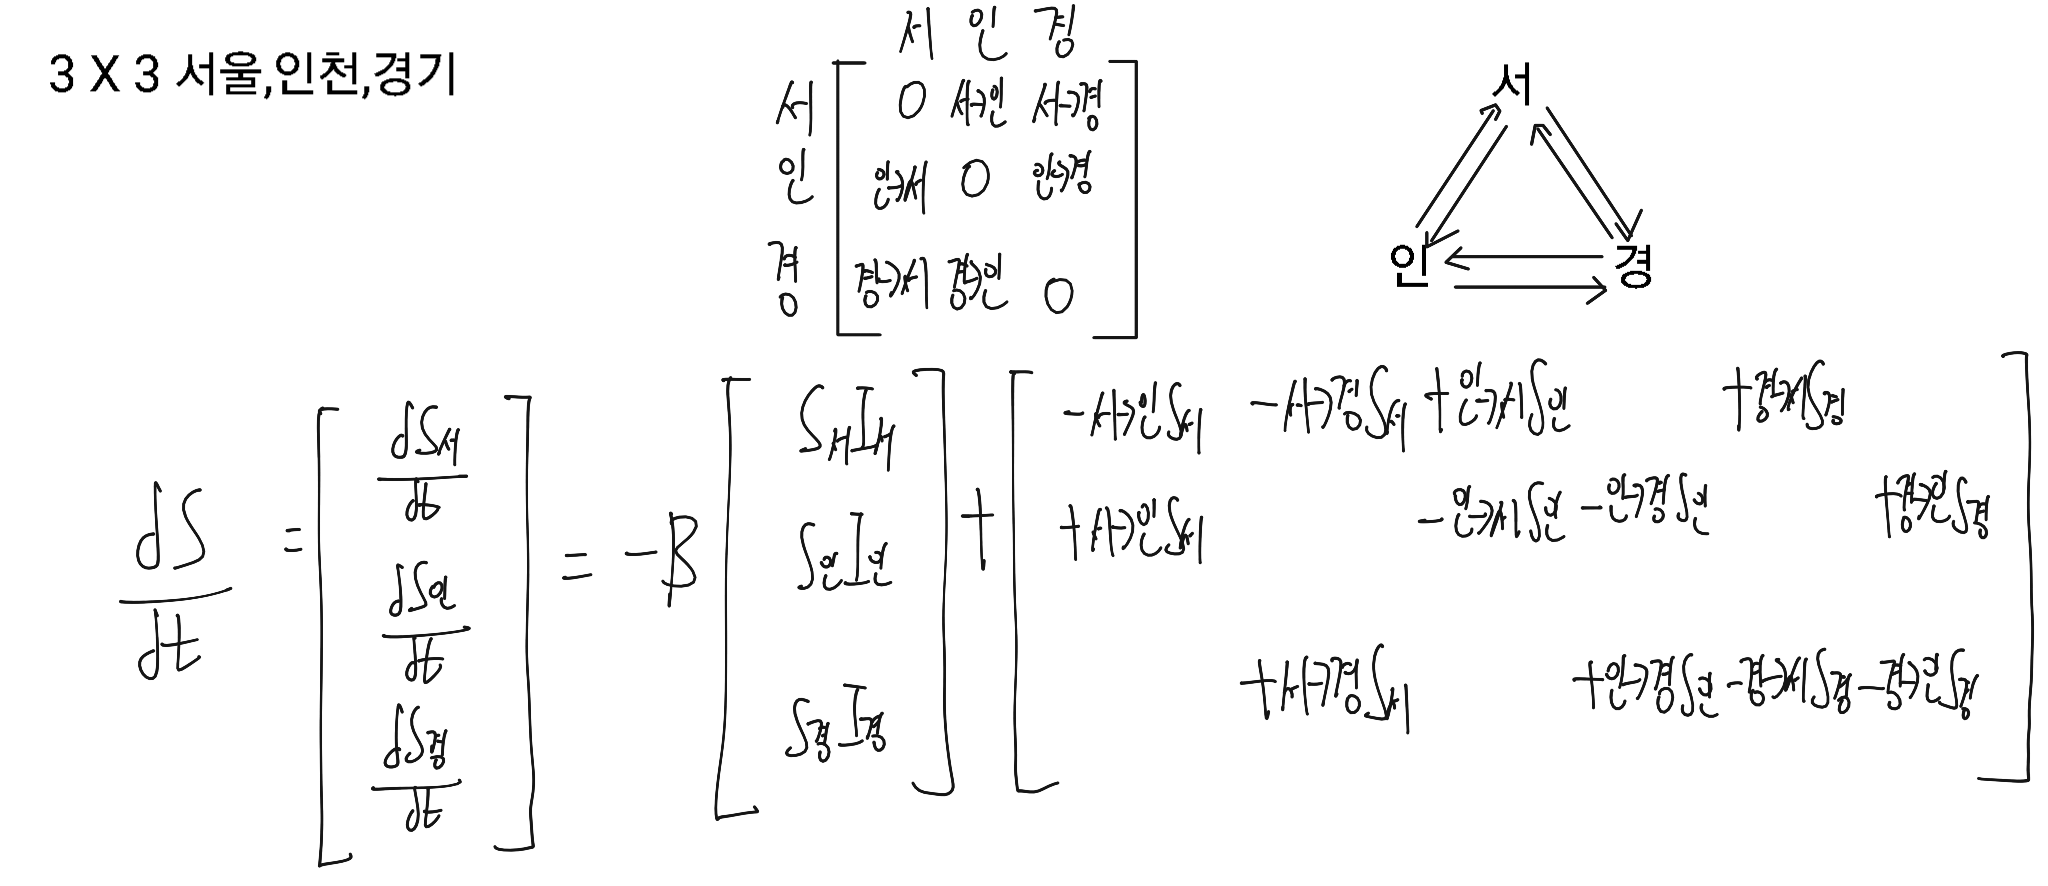 3 X 3 서울,인천,경기
서 인 경
서 0 서→인 서→경
인 인→서 0 인→경
경 경→서 경→인 0
서
인 경
dS/dt = [dS서/dt dS인/dt dS경/dt] = -β [S서I서 S인I인 S경I경] + [
-서→인S서 -서→경S서 +인→서S인 +경→서S경
+서→인S서 -인→서S인 -인→경S인 +경→인S경
+서→경S서 +인→경S인 -경→서S경 -경→인S경 ]